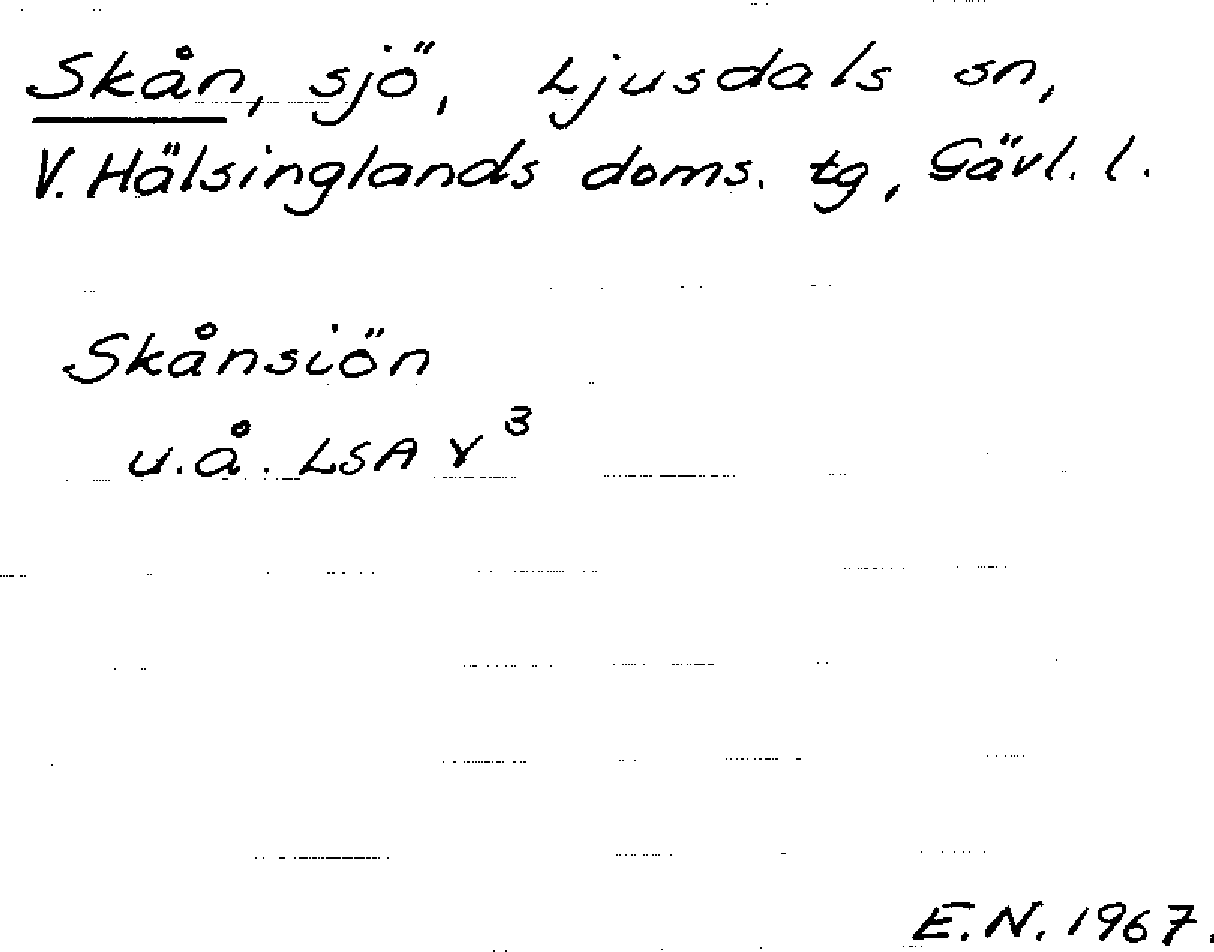 Skån, sjö, Ljusdals sn,
V. Hälsinglands doms. tg, Gävl. l.
Skånsiön
u.å. LSA V³
E.N. 1967.